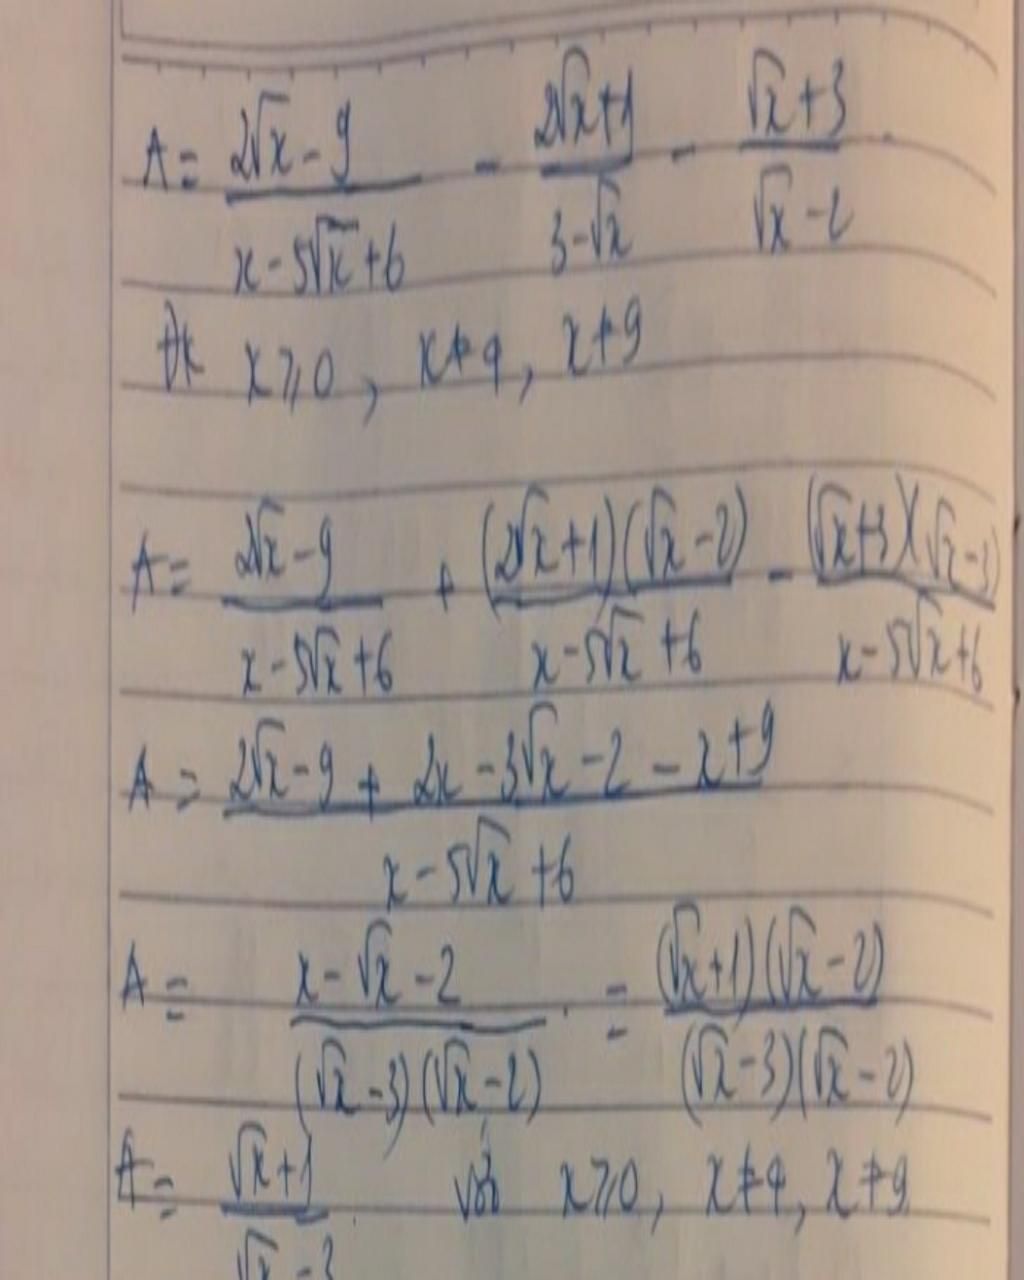 A = (2√x - 9)/(x - 5√x + 6) - (2√x + 1)/(3 - √x) - (√x + 3)/(√x - 2)
Đk x ≥ 0, x ≠ 4, x ≠ 9
A = (2√x - 9)/(x - 5√x + 6) + ((2√x + 1)(√x - 2))/(x - 5√x + 6) - ((√x + 3)(√x - 3))/(x - 5√x + 6)
A = (2√x - 9 + 2x - 3√x - 2 - x + 9)/(x - 5√x + 6)
A = (x - √x - 2)/((√x - 3)(√x - 2)) = ((√x + 1)(√x - 2))/((√x - 3)(√x - 2))
A = (√x + 1)/(√x - 3) với x ≥ 0, x ≠ 4, x ≠ 9